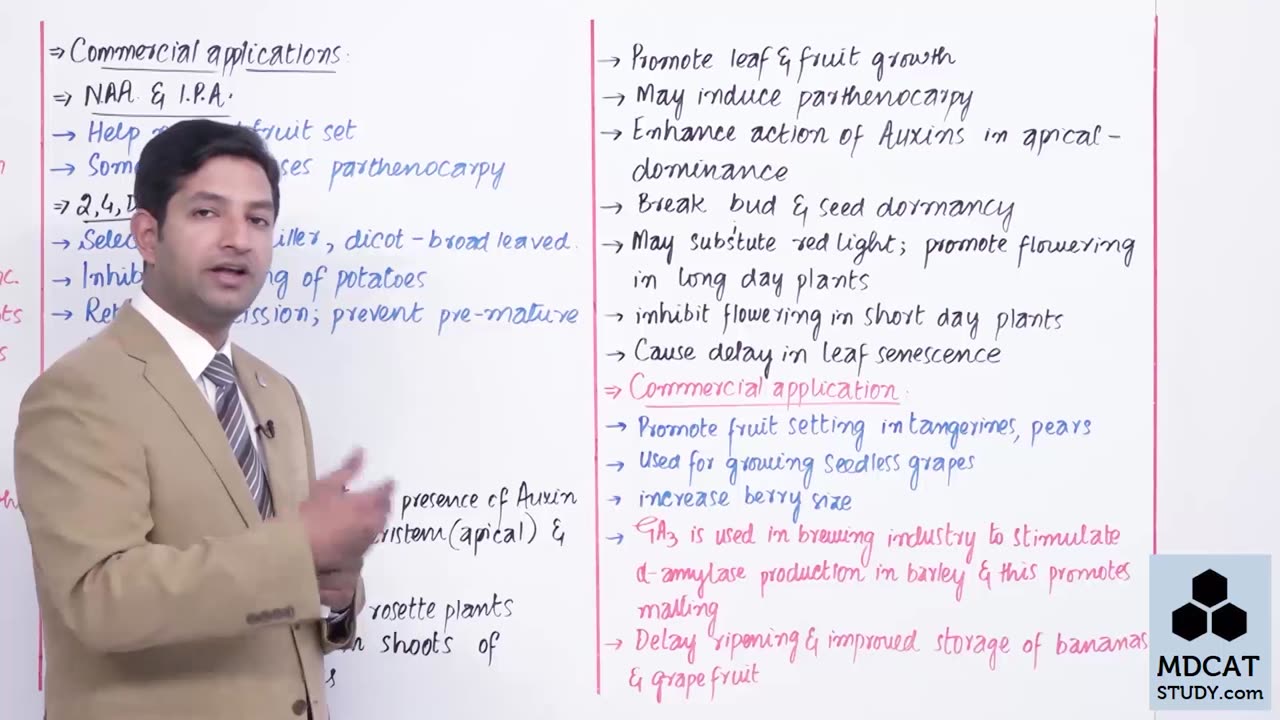 ⇒ Commercial applications:
⇒ NAA. & I.P.A.
→ Help fruit set
→ Som ses parthenocarpy
⇒ 2,4,D
→ Selec iller, dicot-broad leaved.
→ Inhib ng of potatoes
→ Ret ission; prevent pre-mature
presence of Auxin
ristem (apical) &
rosette plants
shoots of
s
→ Promote leaf & fruit growth
→ May induce parthenocarpy
→ Enhance action of Auxins in apical-
dominance
→ Break bud & seed dormancy
→ May substitute red light; promote flowering
in long day plants
→ inhibit flowering in short day plants
→ Cause delay in leaf senescence
⇒ Commercial application:
→ Promote fruit setting in tangerines, pears
→ Used for growing seedless grapes
→ increase berry size
→ GA3 is used in brewing industry to stimulate
α-amylase production in barley & this promotes
malting
→ Delay ripening & improved storage of bananas
& grapefruit
MDCAT
STUDY.com